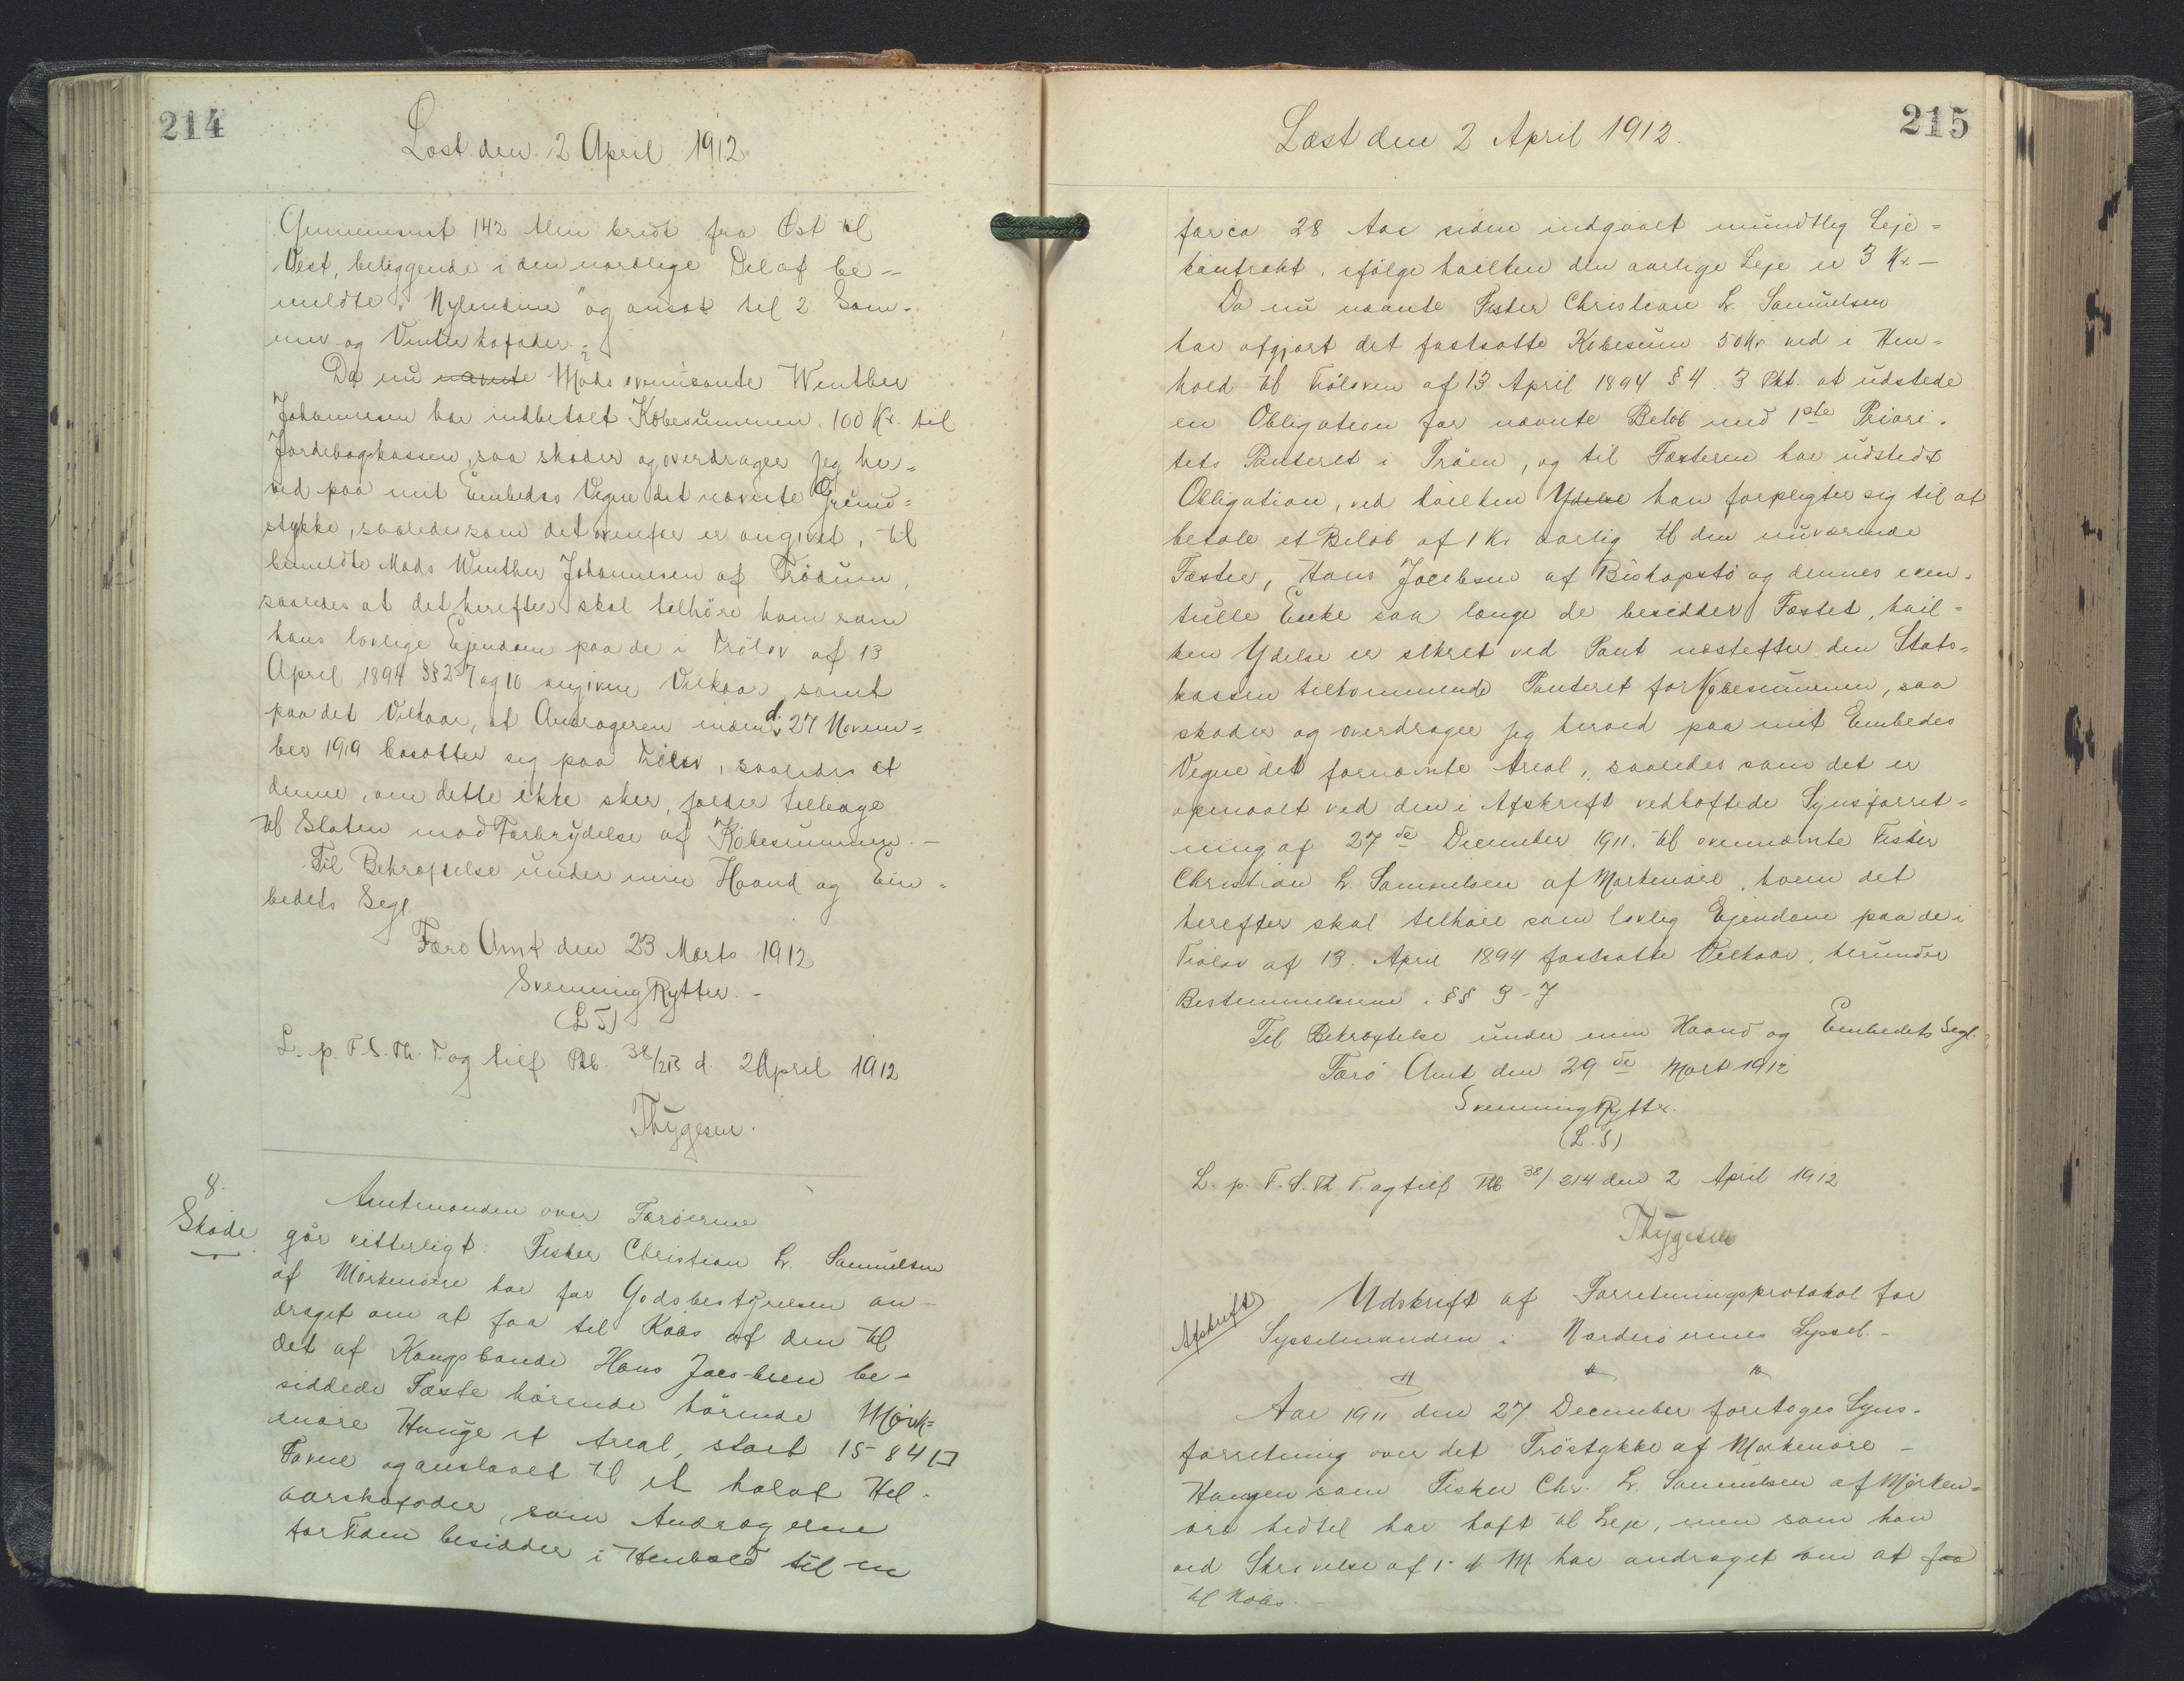 214
Læst den 2 April 1912
Gennemsnit 142 Alen bredt fra Øst til
Vest, beliggende i den nordlige Del af be-
meldte "Nylendine" og ansat til 2 Som-
mer og Vinterkofoder.
Da nu nævnte Mads ovennævnte Winther
Johannesen har indbetalt Købesummen, 100 Kr. til
Jordebogskassen, saa skøder og overdrager jeg her-
ved paa mit Embeds Vegne det nævnte Grund-
stykke, saaledes som det ovenfor er angivet, til
bemeldte Mads Winther Johannesen af Trödum,
saaledes at det herefter skal tilhöre ham som
hans lovlige Ejendom paa de i Trölov af 13
April 1894 §§ 2-7 og 10 angivne Vilkaar samt
paa det Vilkaar, at Andrageren inden d. 27 Novem-
ber 1919 bosætter sig paa Tröen, saaledes at
denne, om dette ikke sker, falder tilbage
til Staten mod Forbrydelse af Købesummen.-
Til Bekræftelse under min Haand og Em-
bedets Segl
Færø Amt den 23 Marts 1912
Svenning Rytter.-
(L S)
L. p. F. S. Th. T og tilf Ptb. 38/213 d. 2 April 1912
Thygesen.
8.
Skøde
Amtmanden over Færøerne
gör vitterligt: Fisker Christian L. Samuelsen
af Mörkenöre har for Godsbestyrelsen an-
draget om at faa til Købs af den til
det af Kongsbonde Hans Jacobsen be-
siddede Fæste hörende hörende Mörk-
enöre Hauge et Areal, stort 1584 □
Favne og anslaaet til et halvt Hel-
aarskofoder, som Andragerne
for Tiden besidder i Henhold til en
215
Læst den 2 April 1912.
for ca 28 Aar siden indgaaet mundtlig Leje-
kontrakt, ifölge hvilken den aarlige Leje er 3 Kr.-
Da nu nævnte Fisker Christian L. Samuelsen
har afgjort det fastsatte Købesum 50 Kr ved i Hen-
hold til Tröloven af 13 April 1894 § 4. 3 Pkt. at udstede
en Obligation for nævnte Beløb med 1ste Priori-
tets Panteret i Tröen, og til Fæsteren har udstedt
Obligation, ved hvilken Ydelse han forpligter sig til at
betale et Beløb af 1 Kr aarlig til den nuværende
Fæster, Hans Jacobsen af Biskopstö og dennes even-
tuelle Enke saa længe de besidder Fæstet, hvil-
ken Ydelse er sikret ved Pant næstefter den Stats-
kassen tilkommende Panteret for Købesummen, saa
skøder og overdrager jeg herved paa mit Embedes
Vegne det fornævnte Areal, saaledes som det er
opmaalt ved den i Afskrift vedhæftede Synsforret-
ning af 27de December 1911. til ovennævnte Fisker
Christian L. Samuelsen af Mörkenöre, hvem det
herefter skal tilhöre som lovlig Ejendom paa de i
Trölov af 13. April 1894 fastsatte Vilkaar, herunder
Bestemmelserne i §§ 3-7
Til Bekræftelse under min Haand og Embedets Segl.
Færö Amt den 29de Mart 1912
Svenning Rytter.
(L. S)
L. p. F. S. Th T. og tilf Ptb 38/214 den 2 April 1912
Thygesen
Afskrift
Udskrift af Forretningsprotokol for
Sysselmanden i Norderöernes Syssel.-
Aar 1911 den 27 December foretoges Syns-
forretning over det Tröstykke af Mörkenöre-
Haugen som Fisker Chr. L. Samuelsen af Mörken-
öre hidtil har haft til Leje, men som han
ved Skrivelse af 1. d M har andraget om at faa
til Købs.-